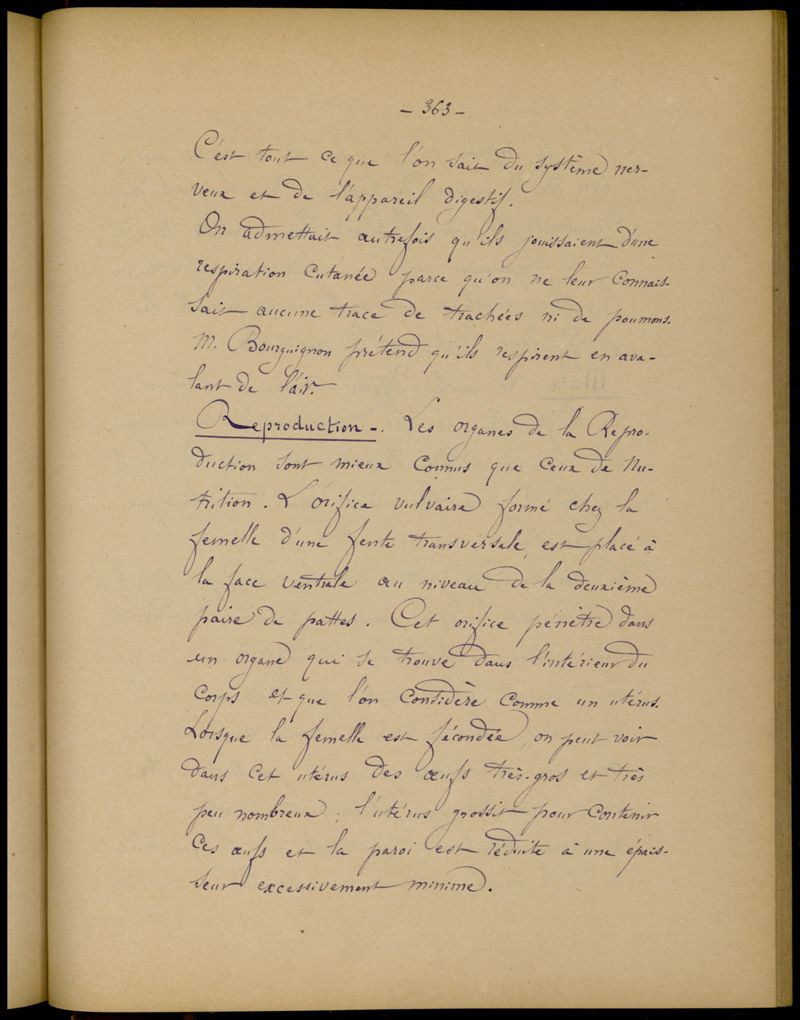 – 363 –
C'est tout ce que l'on sait du système ner-
veux et de l'appareil digestif.
On admettait autrefois qu'ils jouissaient d'une
respiration cutanée parce qu'on ne leur connais-
sait aucune trace de trachées ni de poumons.
M. Bourguignon prétend qu'ils respirent en ava-
lant de l'air.
Reproduction –. Les organes de la Repro-
duction sont mieux connus que ceux de Nu-
trition. L'orifice vulvaire formé chez la
femelle d'une fente transversale, est placé à
la face ventrale au niveau de la deuxième
paire de pattes. Cet orifice pénètre dans
un organe qui se trouve dans l'intérieur du
corps et que l'on considère comme un utérus.
Lorsque la femelle est fécondée, on peut voir
dans cet utérus des œufs très-gros et très
peu nombreux ; l'utérus grossit pour contenir
ces œufs et la paroi est réduite à une épais-
seur excessivement minime.